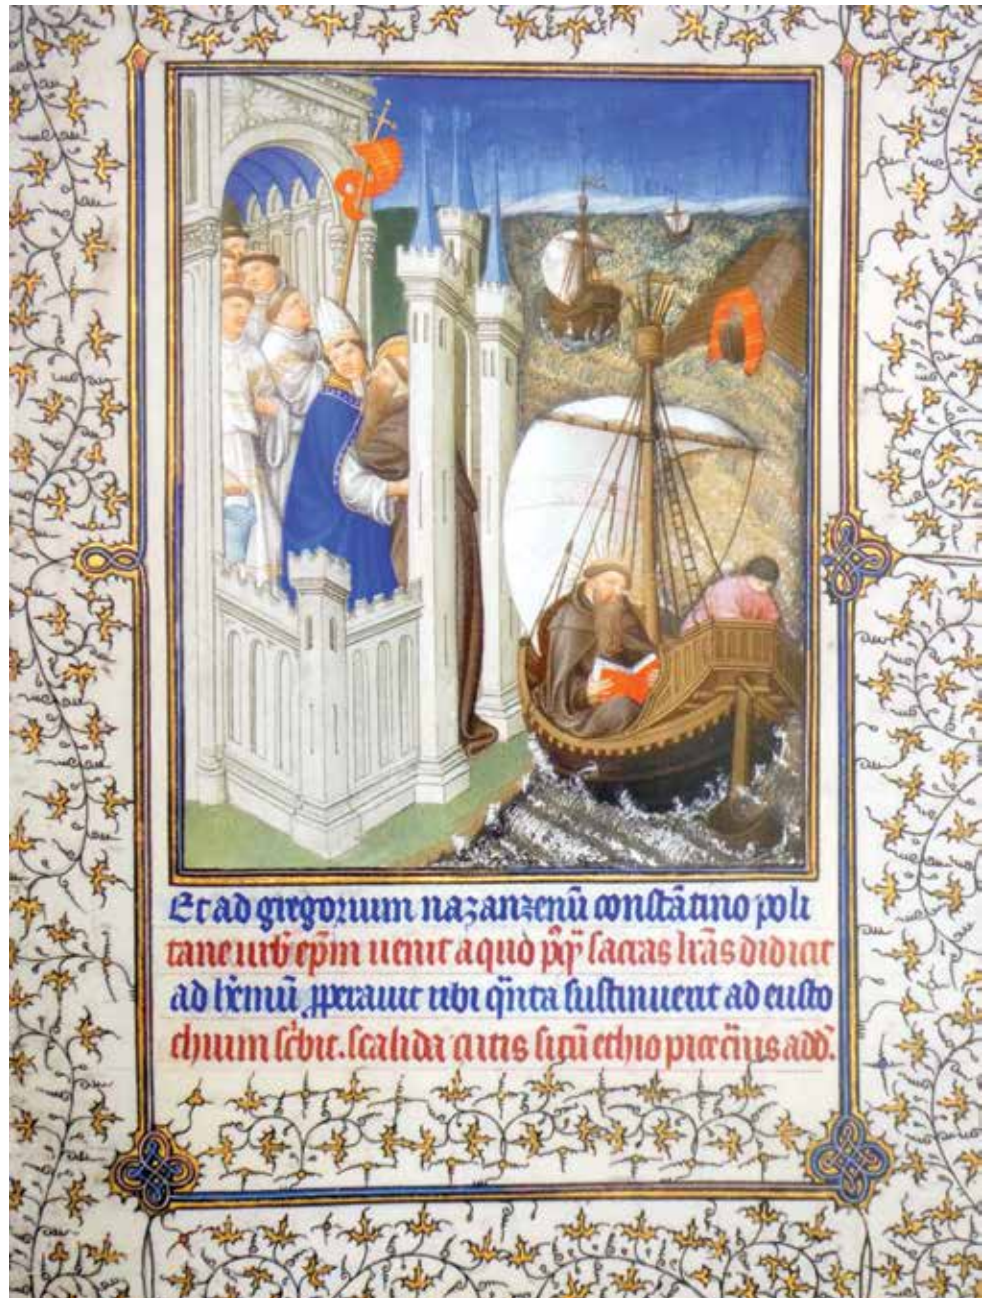 Et ad gregorium nazanzenū constātino poli
tane urb̄ ep̄m uenit a quo p̄p̄ sacras lr̄as didicit
ad h̓emū ꝓperauit ubi q̄nta sustinuerit ad eusto
chium sc̓bit. scalida cutis sicū ethiopice c̄nis add̄.